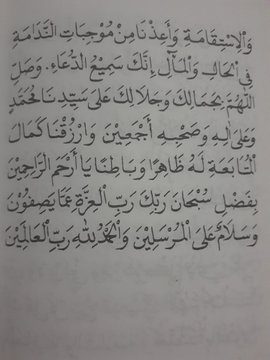 وَالْاِسْتِقَامَةِ وَأَعِذْنَا مِنْ مُوْجِبَاتِ النَّدَامَةِ
فِى الْحَالِ وَالْمَآلِ إِنَّكَ سَمِيْعُ الدُّعَاءِ. وَصَلِّ
اللّٰهُمَّ بِجَمَالِكَ وَجَلَالِكَ عَلَى سَيِّدِنَا مُحَمَّدٍ
وَعَلَى اٰلِهِ وَصَحْبِهِ أَجْمَعِيْنَ وَارْزُقْنَا كَمَالَ
الْمُتَابَعَةِ لَهُ ظَاهِرًا وَبَاطِنًا يَا أَرْحَمَ الرَّاحِمِيْنَ
بِفَضْلِ سُبْحَانَ رَبِّكَ رَبِّ الْعِزَّةِ عَمَّا يَصِفُوْنَ
وَسَلَامٌ عَلَى الْمُرْسَلِيْنَ وَالْحَمْدُ لِلّٰهِ رَبِّ الْعَالَمِيْنَ